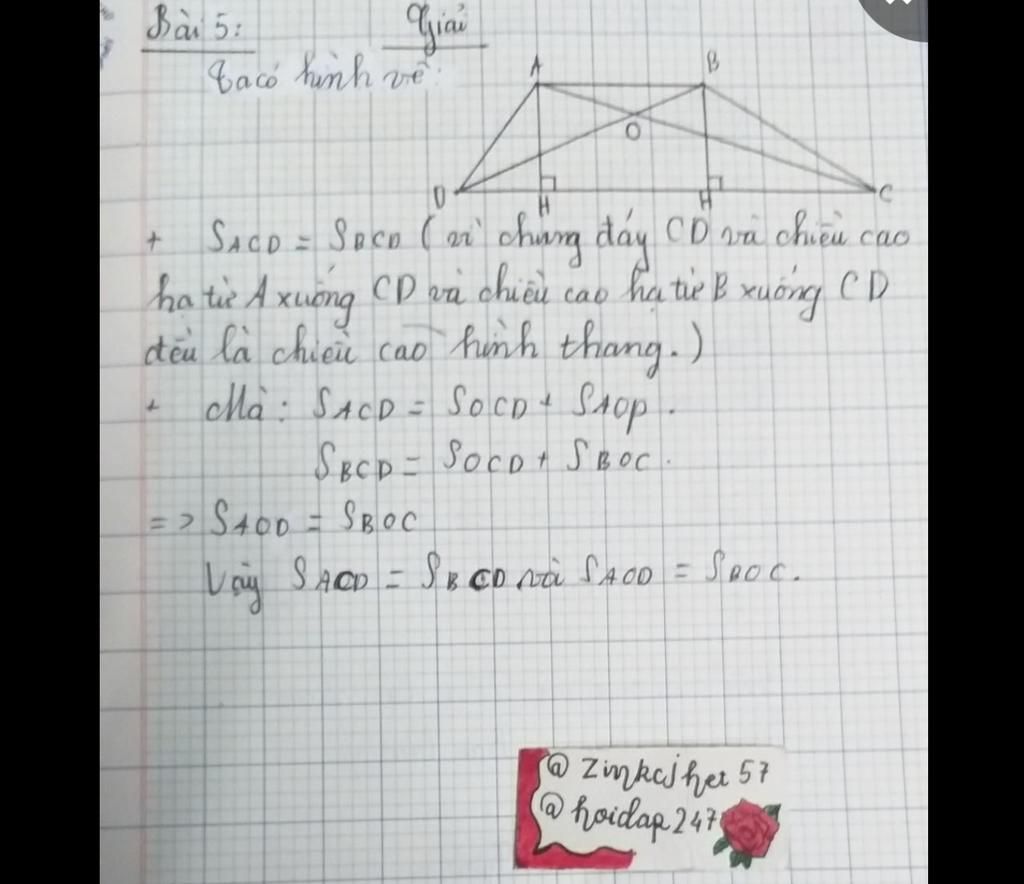 Bài 5: Giải
Ta có hình vẽ:
A B
O
D H H C
+ SACD = SBCD ( vì chung đáy CD và chiều cao
hạ từ A xuống CD và chiều cao hạ từ B xuống CD
đều là chiều cao hình thang.)
+ Mà: SACD = SOCD + SAOD.
SBCD = SOCD + SBOC.
=> SAOD = SBOC
Vậy SACD = SBCD và SAOD = SBOC.
@ Zinkcjhet 57
@ hoidap247